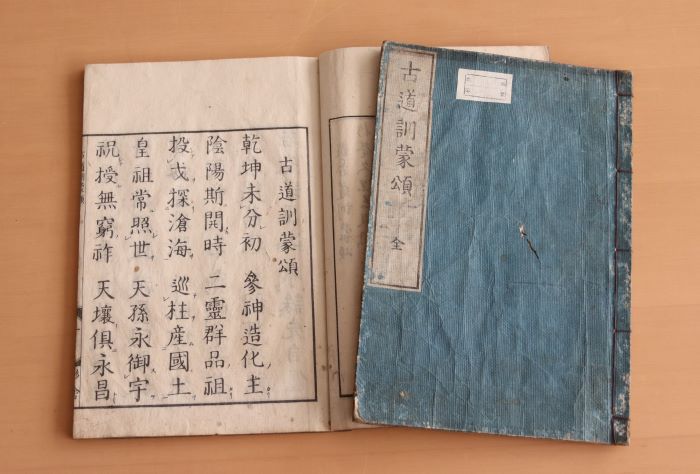 古道訓蒙頌
乾坤未分初 參神造化主
陰陽斯開時 二靈群品祖
投戈探滄海 巡柱産國土
皇祖常照世 天孫永御宇
祝授無窮祚 天壤俱永昌
古道訓蒙頌
全